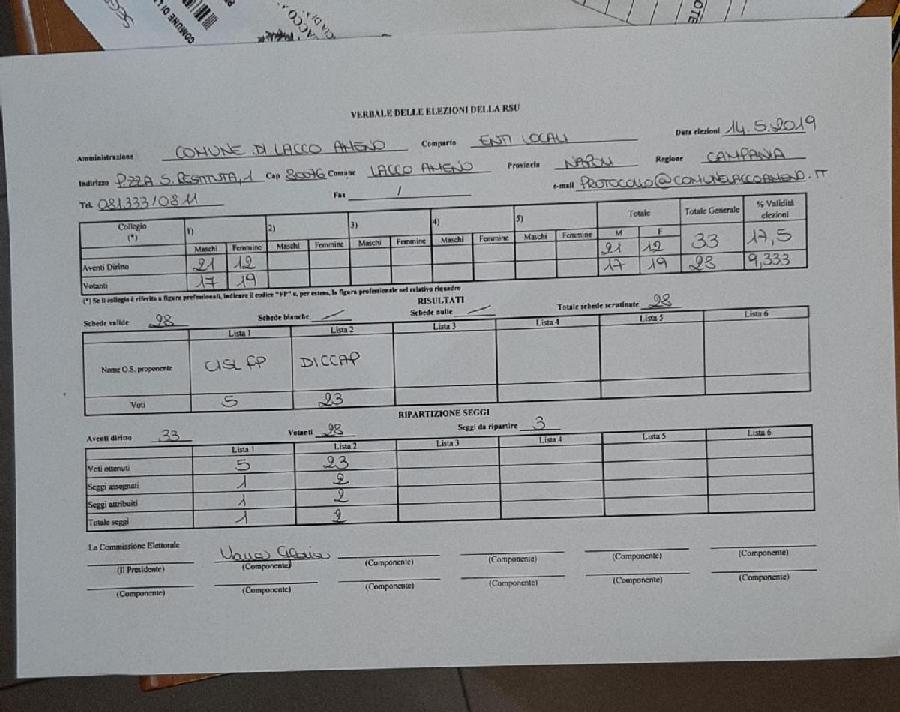 VERBALE DELLE ELEZIONI DELLA RSU
Amministrazione COMUNE DI LACCO AMENO Comparto ENTI LOCALI Data elezioni 14.5.2019
Indirizzo P.ZZA S. RESTITUTA, 1 Cap 80076 Comune LACCO AMENO Provincia NAPOLI Regione CAMPANIA
Tel. 081333/0811 Fax / e-mail PROTOCOLLO@COMUNELACCOAMENO.IT
Collegio (*) 1) 2) 3) 4) 5) Totale Totale Generale % Validità elezioni
Maschi Femmine Maschi Femmine Maschi Femmine Maschi Femmine Maschi Femmine M F
Aventi Diritto 21 12 21 12 33 17,5
Votanti 17 19 17 19 28 9,333
(*) Se il collegio è riferito a figure professionali, indicare il codice "FP" e, per esteso, la figura professionale nel relativo riquadro
RISULTATI
Schede valide 28 Schede bianche / Schede nulle / Totale schede scrutinate 28
Lista 1 Lista 2 Lista 3 Lista 4 Lista 5 Lista 6
Nome O.S. proponente CISL FP DICCAP
Voti 5 23
RIPARTIZIONE SEGGI
Aventi diritto 33 Votanti 28 Seggi da ripartire 3
Lista 1 Lista 2 Lista 3 Lista 4 Lista 5 Lista 6
Voti ottenuti 5 23
Seggi assegnati 1 2
Seggi attribuiti 1 2
Totale seggi 1 2
La Commissione Elettorale
(Il Presidente) (Componente) (Componente) (Componente) (Componente) (Componente)
(Componente) (Componente) (Componente) (Componente) (Componente) (Componente)